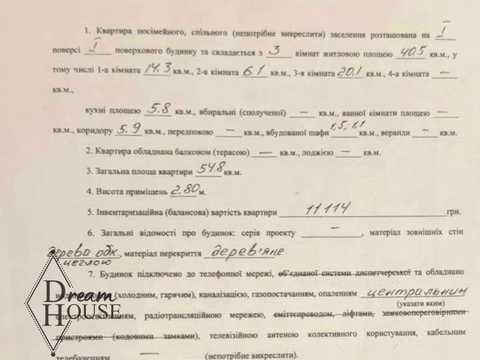 1. Квартира посімейного, спільного (непотрібне викреслити) заселення розташована на I
поверсі I поверхового будинку та складається з 3 кімнат житловою площею 40.5 кв.м., у
тому числі 1-а кімната 14.3 кв.м., 2-а кімната 6.1 кв.м., 3-я кімната 20.1 кв.м., 4-а кімната —
кв.м.,
кухні площею 5.8 кв.м., вбиральні (сполученої) — кв.м., ванної кімнати площею —
кв.м., коридору 5.9 кв.м., передпокою — кв.м., вбудованої шафи 1,5, 1.1 кв.м., веранди — кв.м.
2. Квартира обладнана балконом (терасою) — кв.м., лоджією — кв.м.
3. Загальна площа квартири 54.8 кв.м.
4. Висота приміщень 2.80 м.
5. Інвентаризаційна (балансова) вартість квартири 11114 грн.
6. Загальні відомості про будинок: серія проекту —, матеріал зовнішніх стін
дерево обк. цеглою, матеріал перекриття дерев'яне
7. Будинок підключено до телефонної мережі, об'єднаної системи диспетчерської та обладнано
(холодним, гарячим), каналізацією, газопостачанням, опаленням центральним
(указати яким)
радіотрансляційною мережею, сміттєпроводом, ліфтами, замковопереговорними
пристроями (кодовими замками), телевізійною антеною колективного користування, кабельним
телебаченням — (непотрібне викреслити).
Dream
HOUSE